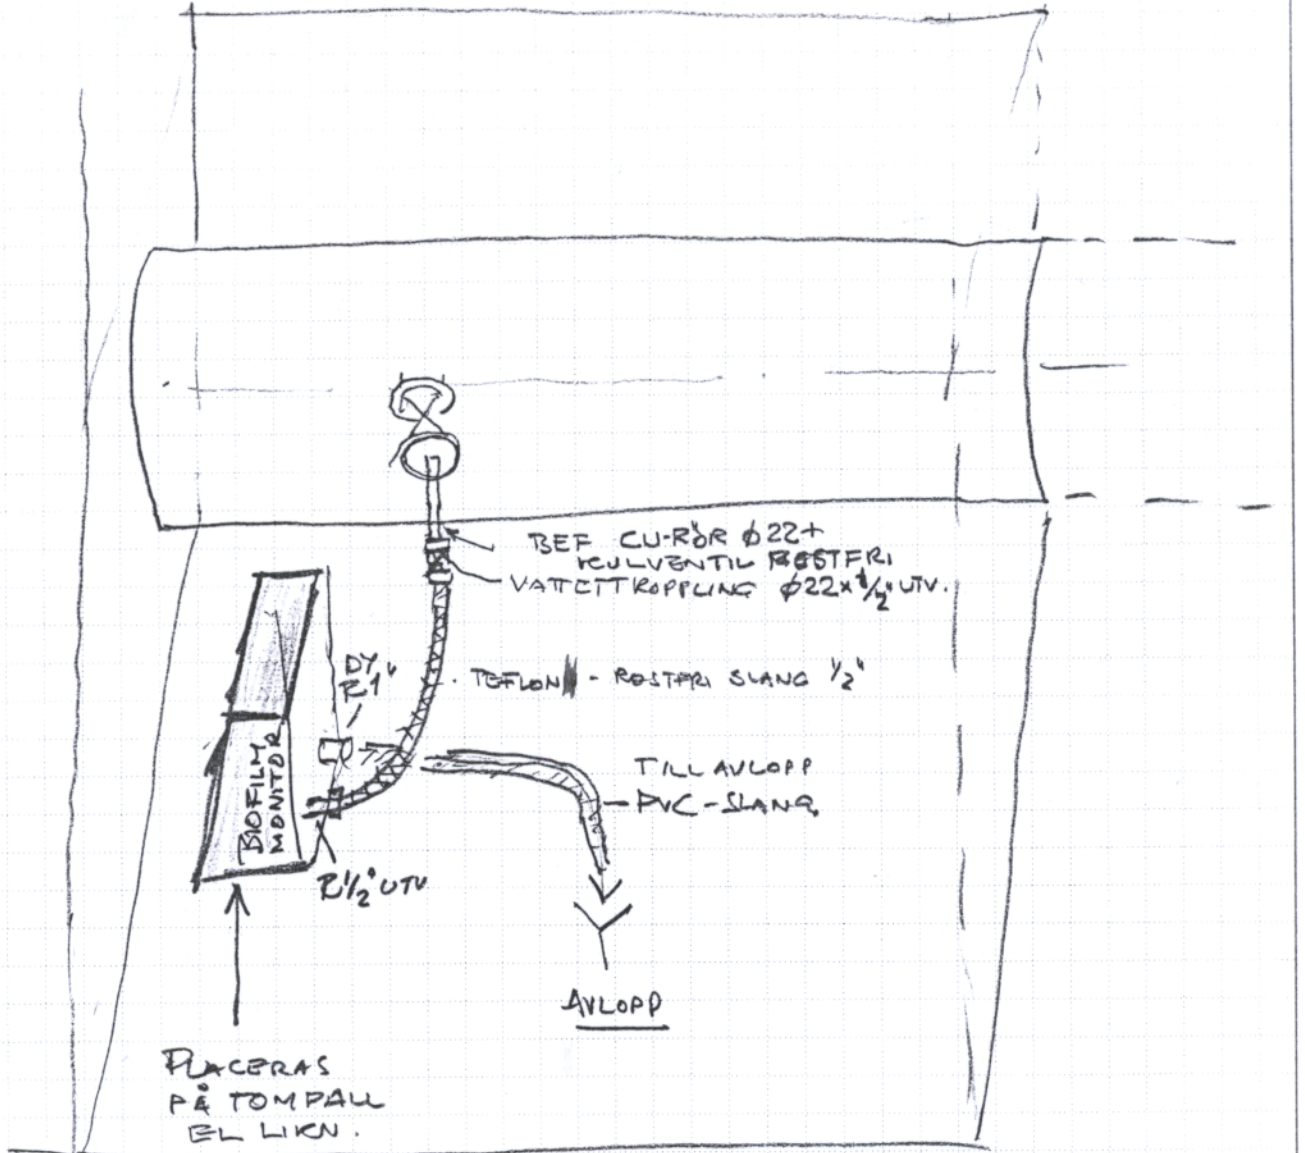 BEF CU-RÖR Ø22+
KULVENTIL ROSTFRI
VATETTKOPPLING Ø22x1/2" UTV.
DY
R1"
TEFLON - ROSTFRI SLANG 1/2"
BIOFILM
MONITOR
TILL AVLOPP
PVC-SLANG
R1/2" UTV
AVLOPP
PLACERAS
PÅ TOMPALL
EL LIKN.